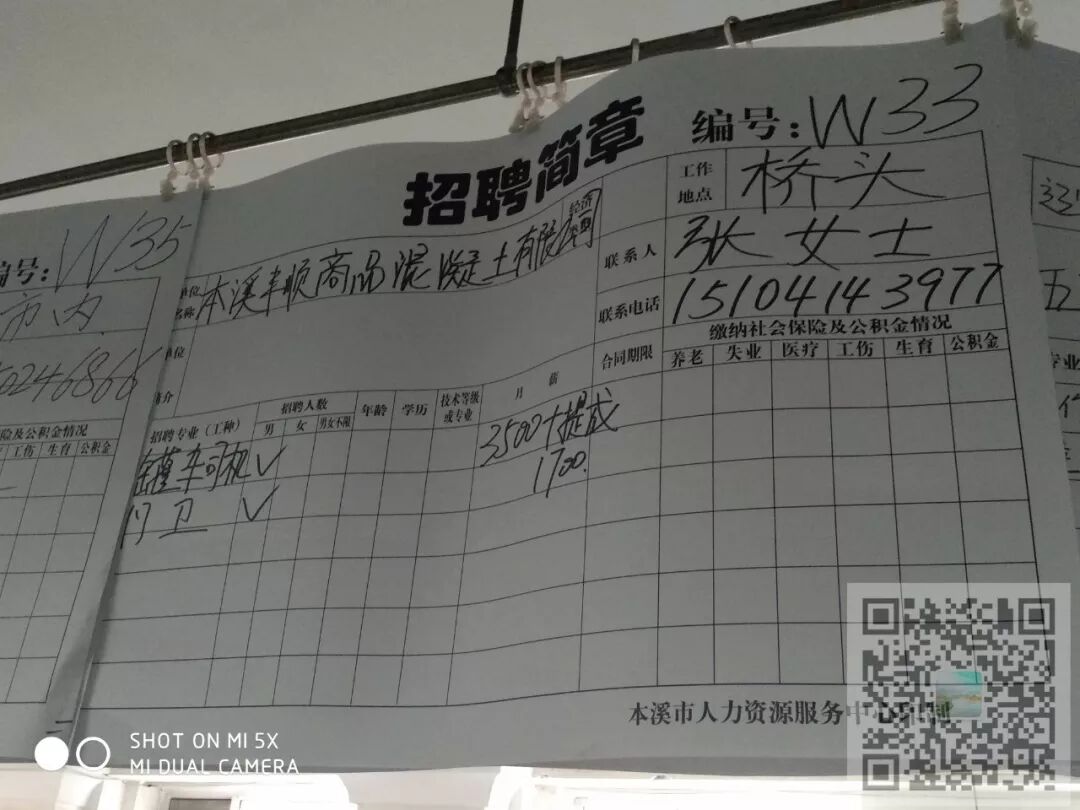 招聘简章
编号:W33
工作地点 桥头
单位名称 本溪丰顺商品混凝土有限公司
联系人 张女士
联系电话 15104143977
缴纳社会保险及公积金情况
合同期限 养老 失业 医疗 工伤 生育 公积金
招聘专业(工种) 招聘人数 年龄 学历 技术等级或专业 月薪
男 女 男女不限
车司机 ✓ 3500+提成
门卫 ✓ 1700.
本溪市人力资源服务中
编号:W35
市内
险及公积金情况
工伤 生育 公积金
SHOT ON MI 5X
MI DUAL CAMERA